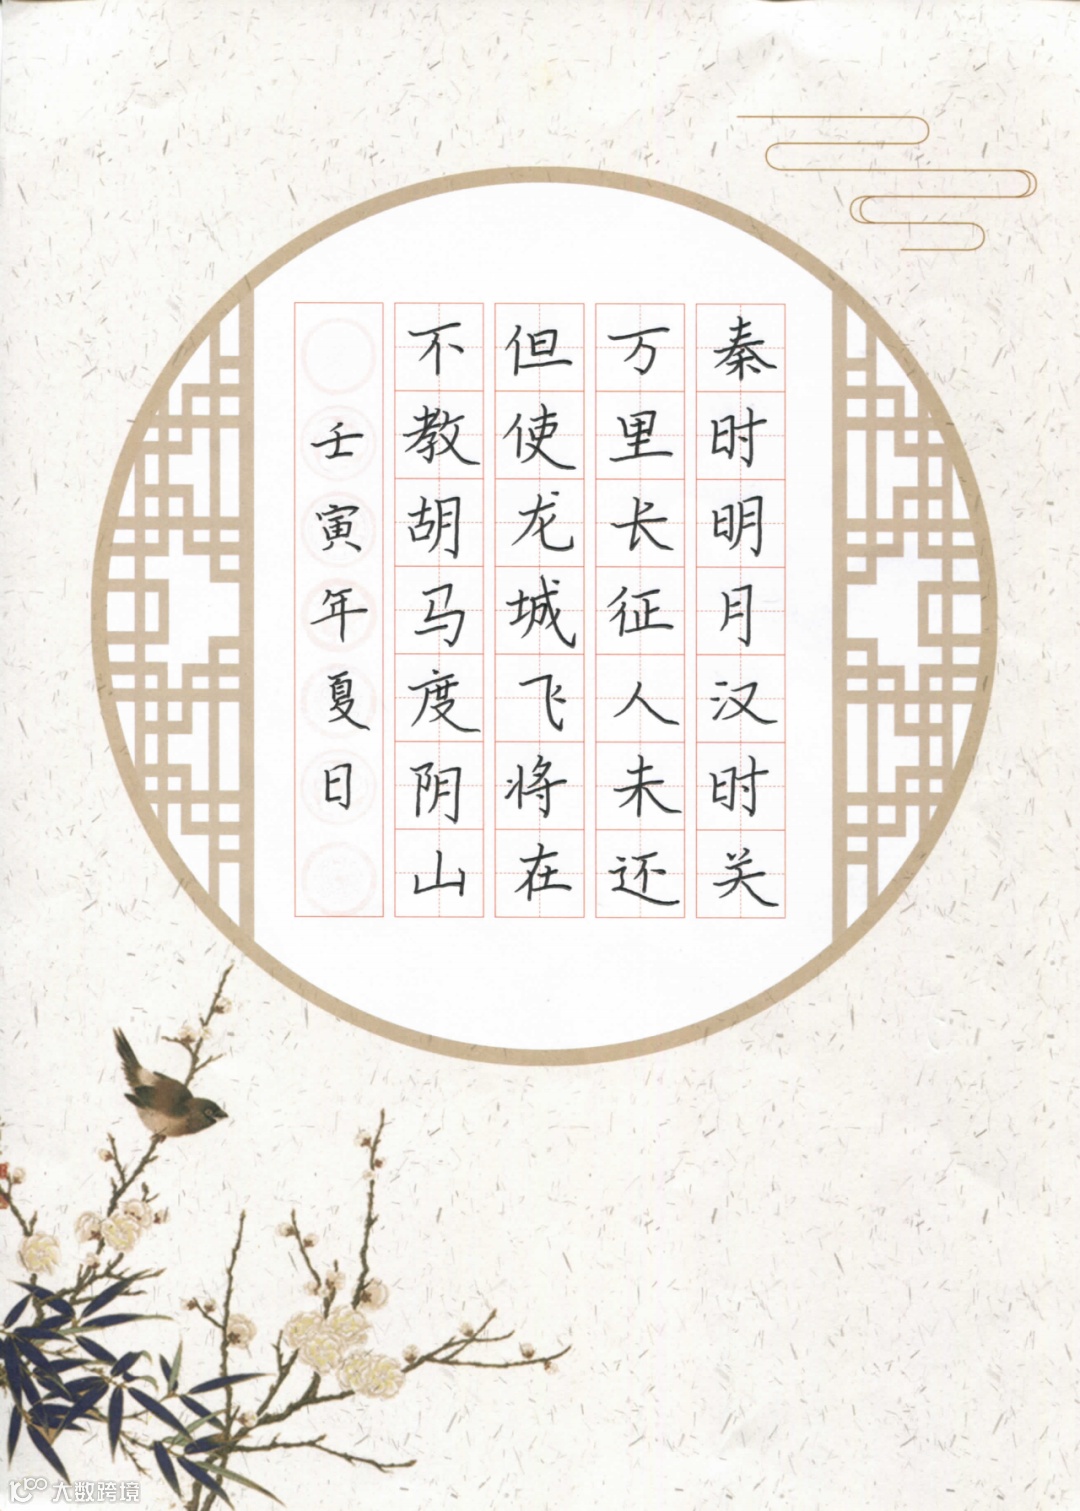 秦时明月汉时关
万里长征人未还
但使龙城飞将在
不教胡马度阴山
壬寅年夏日
大数跨境